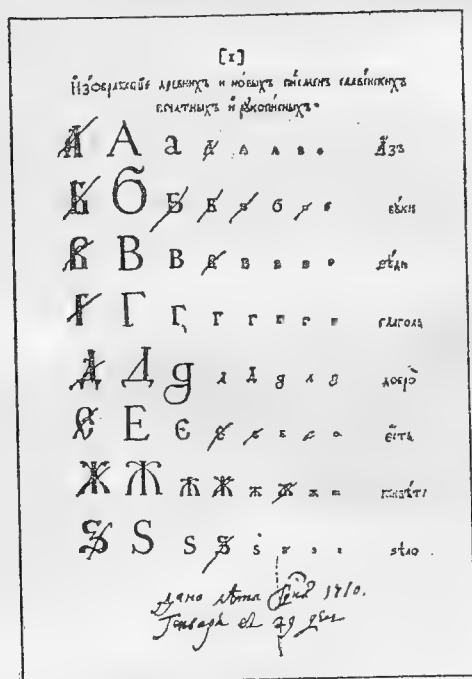 [1]
Изображенїе древнихъ и новыхъ писменъ славенскихъ
печатныхъ и рукописныхъ.
А А а а а а а а Азъ
Б Б Б Б б б б б буки
В В В в в в в в вѣди
Г Г г г г г г г глаголь
Д Д д д д д д д добро
Є Е є е е е е е есть
Ж Ж ж ж ж ж ж ж живѣте
Ѕ Ѕ ѕ ѕ ѕ ѕ ѕ ѕ ѕѣло
Дано лѣта 1710.
Генваря въ 29 день